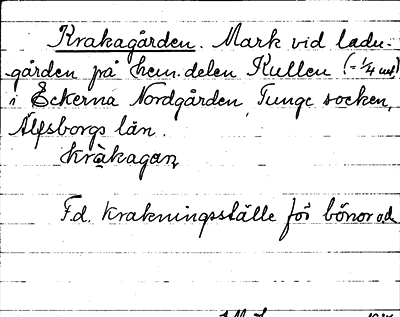 Krakagården. Mark vid ladu-
gården på hem.delen Kullen (=1/4 mtl)
i Eckerna Nordgården, Tunge socken,
Älfsborgs län.
kràkagan,
Fd. krakningsställe för bönor od.